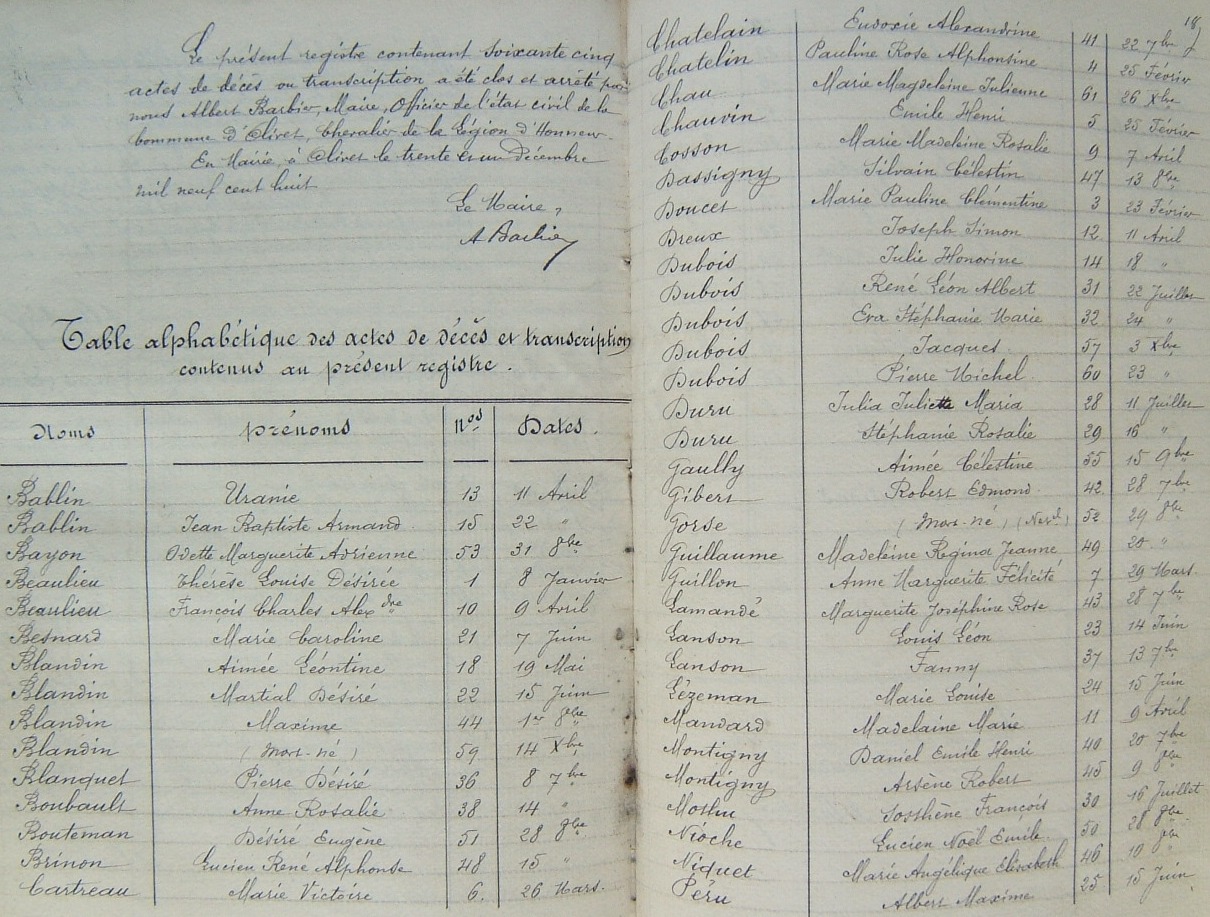 Le présent registre contenant soixante cinq
actes de décès ou transcription a été clos et arrêté par
nous Albert Barbier, Maire, Officier de l'état civil de la
commune d'Olivet, Chevalier de la Légion d'Honneur
En Mairie, à Olivet le trente et un Décembre
mil neuf cent huit
Le Maire,
A Barbier
Table alphabétique des actes de décès et transcription
contenus au présent registre.
Noms prénoms nos Dates.
Bablin Uranie 13 11 Avril
Bablin Jean Baptiste Armand 15 22 "
Bayon Odette Marguerite Adrienne 53 31 8bre
Beaulieu Thérèse Louise Désirée 1 8 Janvier
Beaulieu François Charles Alexdre 10 9 Avril
Besnard Marie Caroline 21 7 Juin
Blandin Aimée Léontine 18 19 Mai
Blandin Martial Désiré 22 15 Juin
Blandin Maxime 44 1er 8bre
Blandin (mort-né) 59 14 Xbre
Blanquet Pierre Désiré 36 8 7bre
Boubault Anne Rosalie 38 14 "
Bouteman Désiré Eugène 51 28 8bre
Brinon Lucien René Alphonse 48 15 "
Cartreau Marie Victoire 6. 26 Mars.
18
Chatelain Eudoxie Alexandrine 41 22 7bre
Chatelin Pauline Rose Alphonsine 4 25 Févrir
Chau Marie Magdeleine Julienne 61 26 Xbre
Chauvin Emile Henri 5 25 Février
Cosson Marie Madeleine Rosalie 9 7 Avril
Dassigny Silvain Célestin 47 13 8bre
Doucet Marie Pauline Clémentine 3 23 Février
Dreux Joseph Simon 12 11 Avril
Dubois Julie Honorine 14 18 "
Dubois René Léon Albert 31 22 Juillet
Dubois Eva Stéphanie Marie 32 24 "
Dubois Jacques 57 3 Xbre
Dubois Pierre Michel 60 23 "
Duru Julia Juliette Maria 28 11 Juillet
Duru Stéphanie Rosalie 29 16 "
Gaully Aimée Célestine 55 15 9bre
Gibert Robert Edmond 42 28 7bre
Gorse (mort-né) 52 29 8bre
Guillaume Madeleine Régina Jeanne 49 20 "
Guillon Anne Marguerite Félicité 7 29 Mars.
Lamandé Marguerite Joséphine Rose 43 28 7bre
Lanson Louis Léon 23 14 Juin
Lanson Fanny 37 13 7bre
Lézeman Marie Louise 24 15 Juin
Mandard Madelaine Marie 11 9 Avril
Montigny Daniel Emile Henri 40 20 7bre
Montigny Arsène Robert 45 9 8bre
Mothu Sosthène François 30 16 Juillet
Nioche Lucien Noël Emile 50 28 8bre
Niquet Marie Angélique Elisabeth 46 10 8bre
Péru Albert Maxime 25 15 Juin